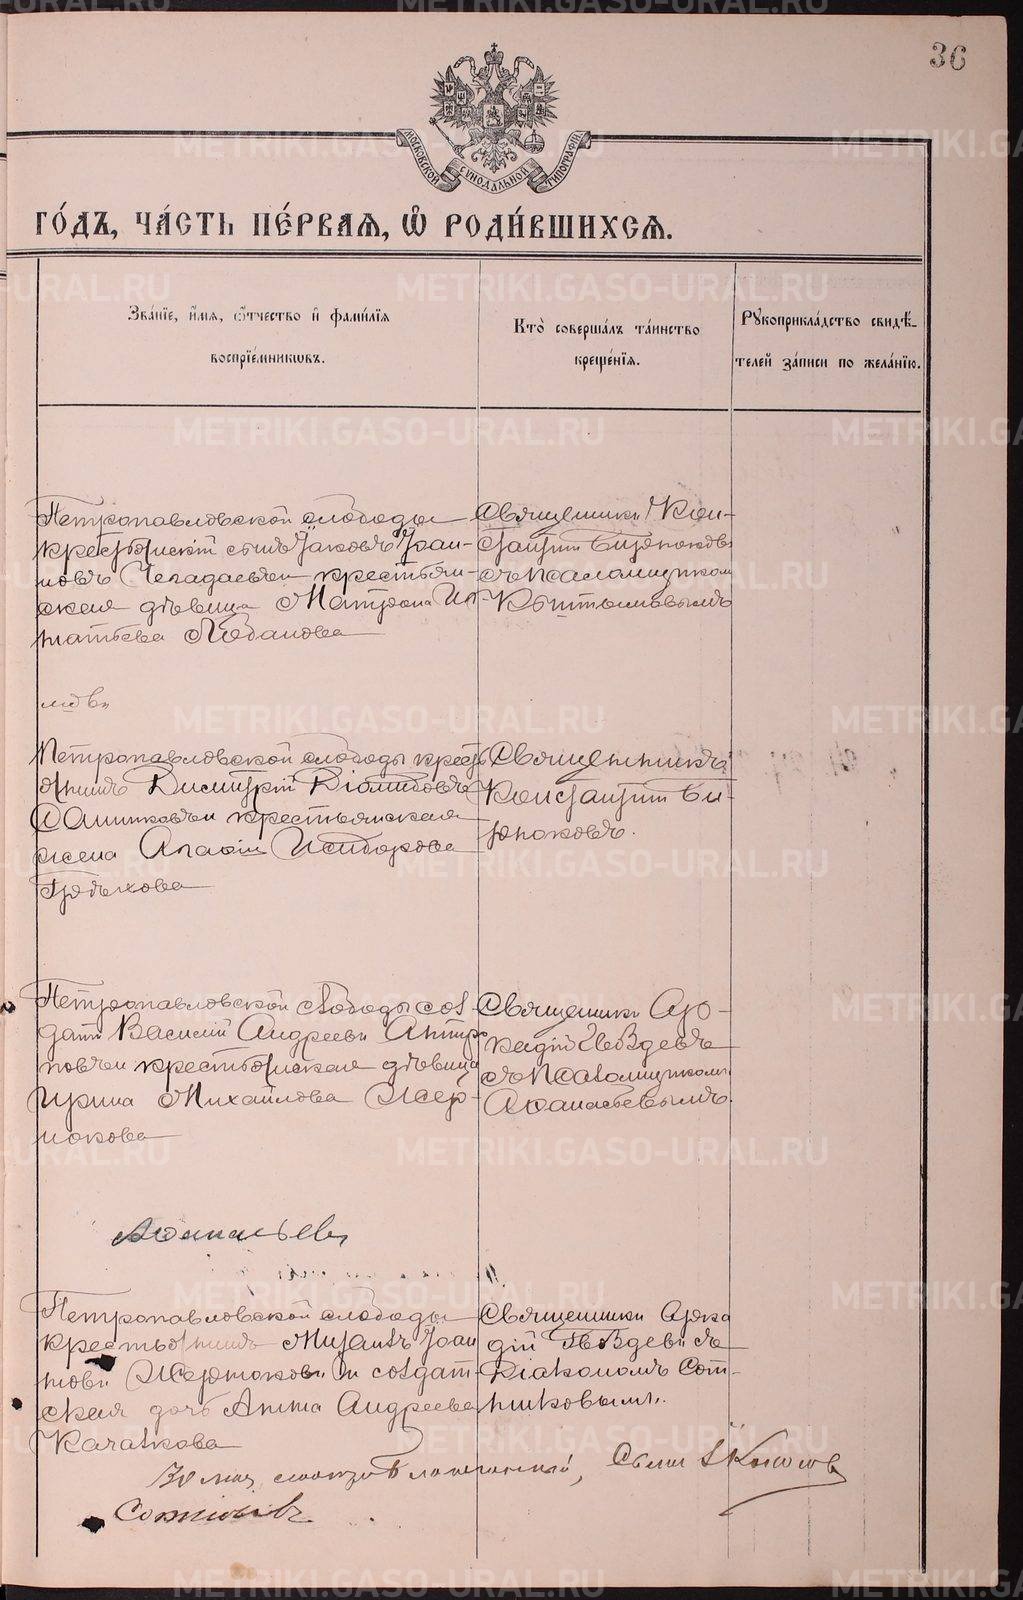 36
МОСКОВСКОЙ СУНОДАЛЬНОЙ ТИПОГРАФІИ
ГО́ДЪ, ЧА́СТЬ ПЕ́РВАѦ, Ѡ҆ РОДИ́ВШИХСѦ.
Зва́нїе, и҆́мѧ, ѻ҆́тчество и҆ фами́лїѧ
воспрїе́мникѡвъ.
Кто̀ соверша́лъ та́инство
креще́нїѧ.
Рꙋкоприкла́дство свидѣ́-
телей за́писи по жела́нїю.
Петропавловской слободы
крестьянскій сынъ Іаковъ Іоан-
новъ и крестьян-
ская дѣвица Матрона Иг-
натьева Лобанова
Священникъ Кон-
стантинъ Бирюковъ
съ псаломщикомъ
Кыштымовымъ
Петропавловской слободы крест
янинъ Димитрій Діомидовъ
и крестьянская
жена Агафія Исидорова
Грѣхова
Священникъ
Константинъ Би-
рюковъ.
Петропавловской слободы сол
датъ Василій Андреевъ Антип
повъ и крестьянская дѣвица
Ирина Михайлова Жер-
нокова
Священникъ Ар-
кадій Гвоздевъ
съ псаломщикомъ
Афанасьевымъ.
Афанасьевъ
Петропавловской слободы
крестьянинъ Михаилъ Іоан
новъ Жерноковъ и солдат-
ская дочь Анна Андреева
Качалкова
Священникъ Арка
дій Гвоздевъ съ
діакономъ Сот-
никовымъ.
Сотниковъ
METRIKI.GASO-URAL.RU